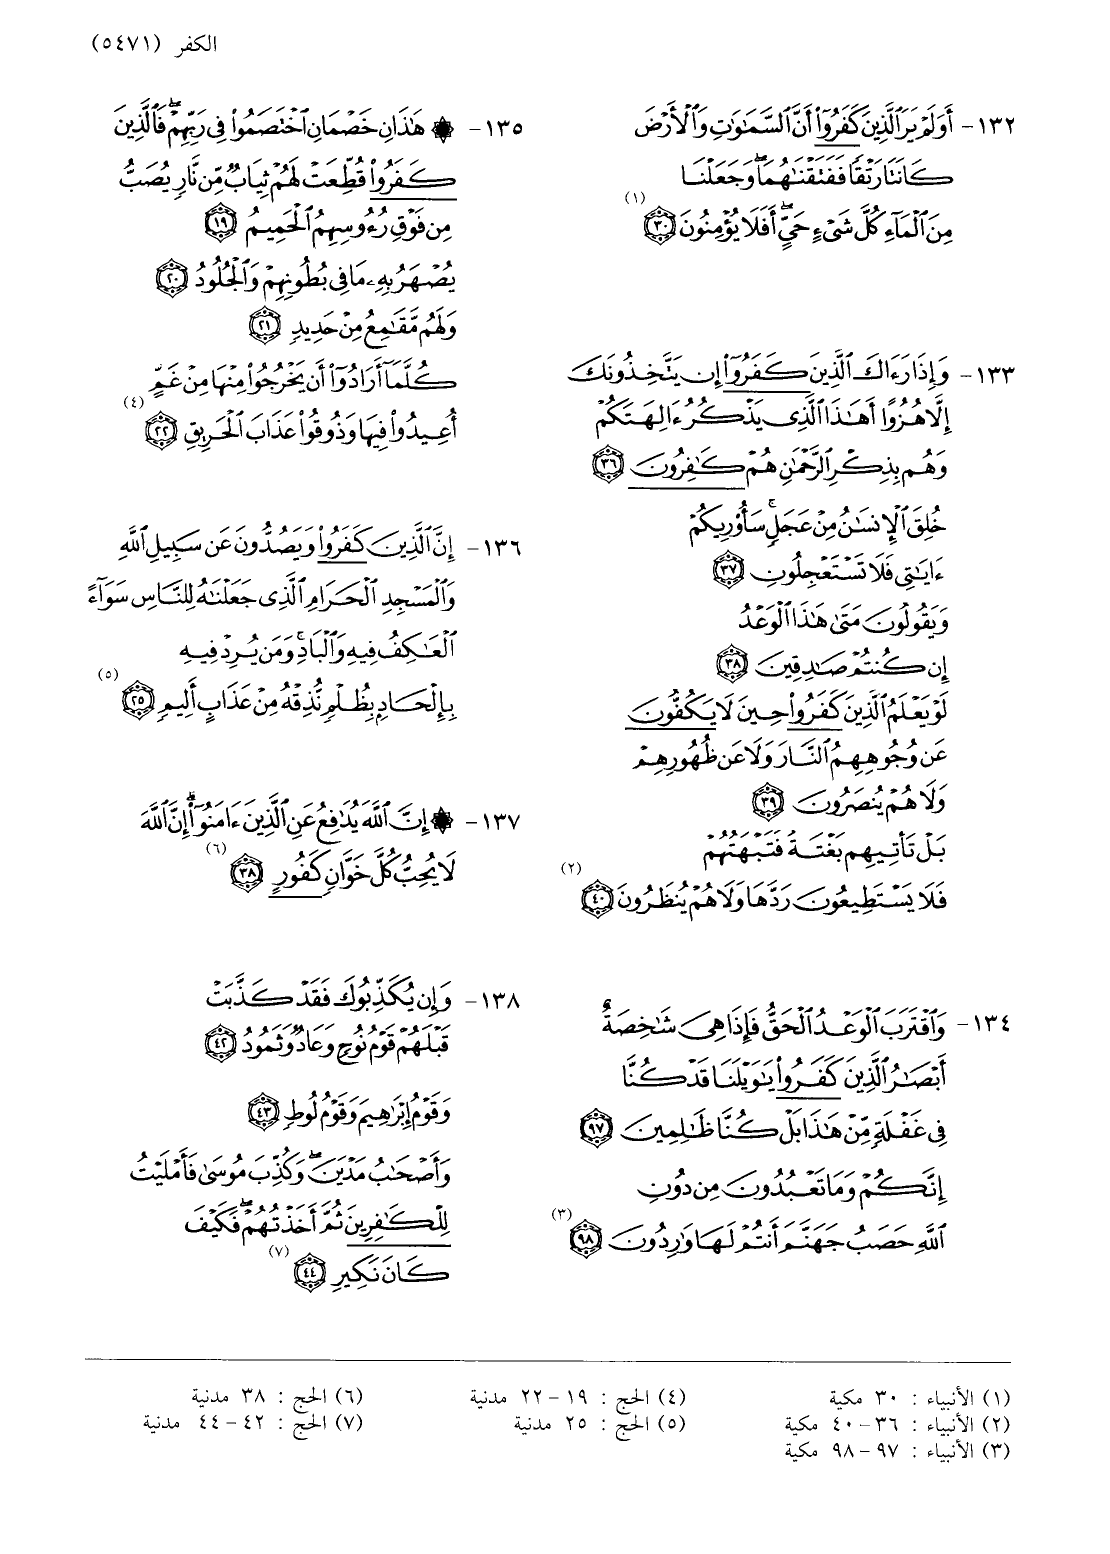 الكفر (٥٤٧١)
١٣٢- أَوَلَمْ يَرَ ٱلَّذِينَ كَفَرُوٓا۟ أَنَّ ٱلسَّمَٰوَٰتِ وَٱلْأَرْضَ
كَانَتَا رَتْقًا فَفَتَقْنَٰهُمَا ۖ وَجَعَلْنَا
مِنَ ٱلْمَآءِ كُلَّ شَىْءٍ حَىٍّ ۖ أَفَلَا يُؤْمِنُونَ ﴿٣٠﴾ (١)
١٣٣- وَإِذَا رَءَاكَ ٱلَّذِينَ كَفَرُوٓا۟ إِن يَتَّخِذُونَكَ
إِلَّا هُزُوًا أَهَٰذَا ٱلَّذِى يَذْكُرُ ءَالِهَتَكُمْ
وَهُم بِذِكْرِ ٱلرَّحْمَٰنِ هُمْ كَٰفِرُونَ ﴿٣٦﴾
خُلِقَ ٱلْإِنسَٰنُ مِنْ عَجَلٍ ۚ سَأُو۟رِيكُمْ
ءَايَٰتِى فَلَا تَسْتَعْجِلُونِ ﴿٣٧﴾
وَيَقُولُونَ مَتَىٰ هَٰذَا ٱلْوَعْدُ
إِن كُنتُمْ صَٰدِقِينَ ﴿٣٨﴾
لَوْ يَعْلَمُ ٱلَّذِينَ كَفَرُوا۟ حِينَ لَا يَكُفُّونَ
عَن وُجُوهِهِمُ ٱلنَّارَ وَلَا عَن ظُهُورِهِمْ
وَلَا هُمْ يُنصَرُونَ ﴿٣٩﴾
بَلْ تَأْتِيهِم بَغْتَةً فَتَبْهَتُهُمْ
فَلَا يَسْتَطِيعُونَ رَدَّهَا وَلَا هُمْ يُنظَرُونَ ﴿٤٠﴾ (٢)
١٣٤- وَٱقْتَرَبَ ٱلْوَعْدُ ٱلْحَقُّ فَإِذَا هِىَ شَٰخِصَةٌ
أَبْصَٰرُ ٱلَّذِينَ كَفَرُوا۟ يَٰوَيْلَنَا قَدْ كُنَّا
فِى غَفْلَةٍ مِّنْ هَٰذَا بَلْ كُنَّا ظَٰلِمِينَ ﴿٩٧﴾
إِنَّكُمْ وَمَا تَعْبُدُونَ مِن دُونِ
ٱللَّهِ حَصَبُ جَهَنَّمَ أَنتُمْ لَهَا وَٰرِدُونَ ﴿٩٨﴾ (٣)
١٣٥- ۞ هَٰذَانِ خَصْمَانِ ٱخْتَصَمُوا۟ فِى رَبِّهِمْ ۖ فَٱلَّذِينَ
كَفَرُوا۟ قُطِّعَتْ لَهُمْ ثِيَابٌ مِّن نَّارٍ يُصَبُّ
مِن فَوْقِ رُءُوسِهِمُ ٱلْحَمِيمُ ﴿١٩﴾
يُصْهَرُ بِهِۦ مَا فِى بُطُونِهِمْ وَٱلْجُلُودُ ﴿٢٠﴾
وَلَهُم مَّقَٰمِعُ مِنْ حَدِيدٍ ﴿٢١﴾
كُلَّمَآ أَرَادُوٓا۟ أَن يَخْرُجُوا۟ مِنْهَا مِنْ غَمٍّ
أُعِيدُوا۟ فِيهَا وَذُوقُوا۟ عَذَابَ ٱلْحَرِيقِ ﴿٢٢﴾ (٤)
١٣٦- إِنَّ ٱلَّذِينَ كَفَرُوا۟ وَيَصُدُّونَ عَن سَبِيلِ ٱللَّهِ
وَٱلْمَسْجِدِ ٱلْحَرَامِ ٱلَّذِى جَعَلْنَٰهُ لِلنَّاسِ سَوَآءً
ٱلْعَٰكِفُ فِيهِ وَٱلْبَادِ ۚ وَمَن يُرِدْ فِيهِ
بِإِلْحَادٍۭ بِظُلْمٍ نُّذِقْهُ مِنْ عَذَابٍ أَلِيمٍ ﴿٢٥﴾ (٥)
١٣٧- ۞ إِنَّ ٱللَّهَ يُدَٰفِعُ عَنِ ٱلَّذِينَ ءَامَنُوٓا۟ ۗ إِنَّ ٱللَّهَ
لَا يُحِبُّ كُلَّ خَوَّانٍ كَفُورٍ ﴿٣٨﴾ (٦)
١٣٨- وَإِن يُكَذِّبُوكَ فَقَدْ كَذَّبَتْ
قَبْلَهُمْ قَوْمُ نُوحٍ وَعَادٌ وَثَمُودُ ﴿٤٢﴾
وَقَوْمُ إِبْرَٰهِيمَ وَقَوْمُ لُوطٍ ﴿٤٣﴾
وَأَصْحَٰبُ مَدْيَنَ ۖ وَكُذِّبَ مُوسَىٰ فَأَمْلَيْتُ
لِلْكَٰفِرِينَ ثُمَّ أَخَذْتُهُمْ ۖ فَكَيْفَ
كَانَ نَكِيرِ ﴿٤٤﴾ (٧)
(١) الأنبياء : ٣٠ مكية
(٢) الأنبياء : ٣٦ - ٤٠ مكية
(٣) الأنبياء : ٩٧ - ٩٨ مكية
(٤) الحج : ١٩ - ٢٢ مدنية
(٥) الحج : ٢٥ مدنية
(٦) الحج : ٣٨ مدنية
(٧) الحج : ٤٢ - ٤٤ مدنية